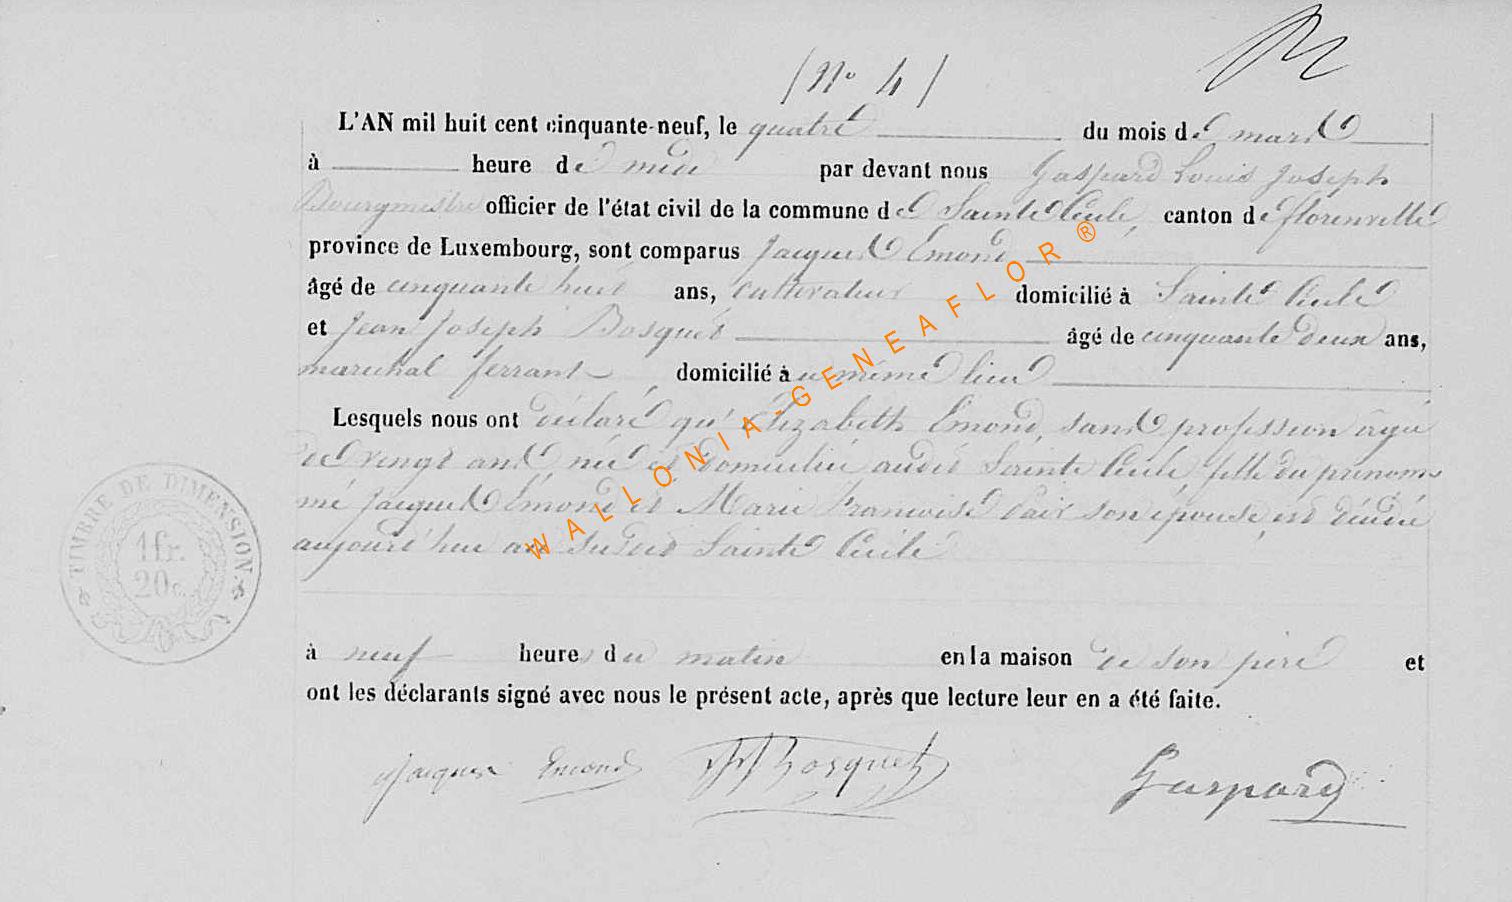 (N° 4)
L'AN mil huit cent cinquante-neuf, le quatre du mois de mars
à heure de midi par devant nous Gaspard Louis Joseph
Bourgmestre officier de l'état civil de la commune de Sainte Cécile, canton de florenville
province de Luxembourg, sont comparus Jacques Emond
âgé de cinquante huit ans, cultivateur domicilié à Sainte Cécile
et Jean Joseph Bosquet âgé de cinquante deux ans,
marechal ferrant, domicilié au même lieu
Lesquels nous ont déclaré qu'Elizabeth Emond, sans profession âgée
de vingt ans, née et domiciliée audit Sainte Cécile, fille du prénom
mé Jacques Emond et Marie Francoise son épouse, est décédée
aujourd'hui au susdit Sainte Cécile
à neuf heures du matin en la maison de son père et
ont les déclarants signé avec nous le présent acte, après que lecture leur en a été faite.
Jacques Emond JJBosquet Gaspard
TIMBRE DE DIMENSION.
1 fr.
20 c.
WALLONIA-GENEAFLOR ®